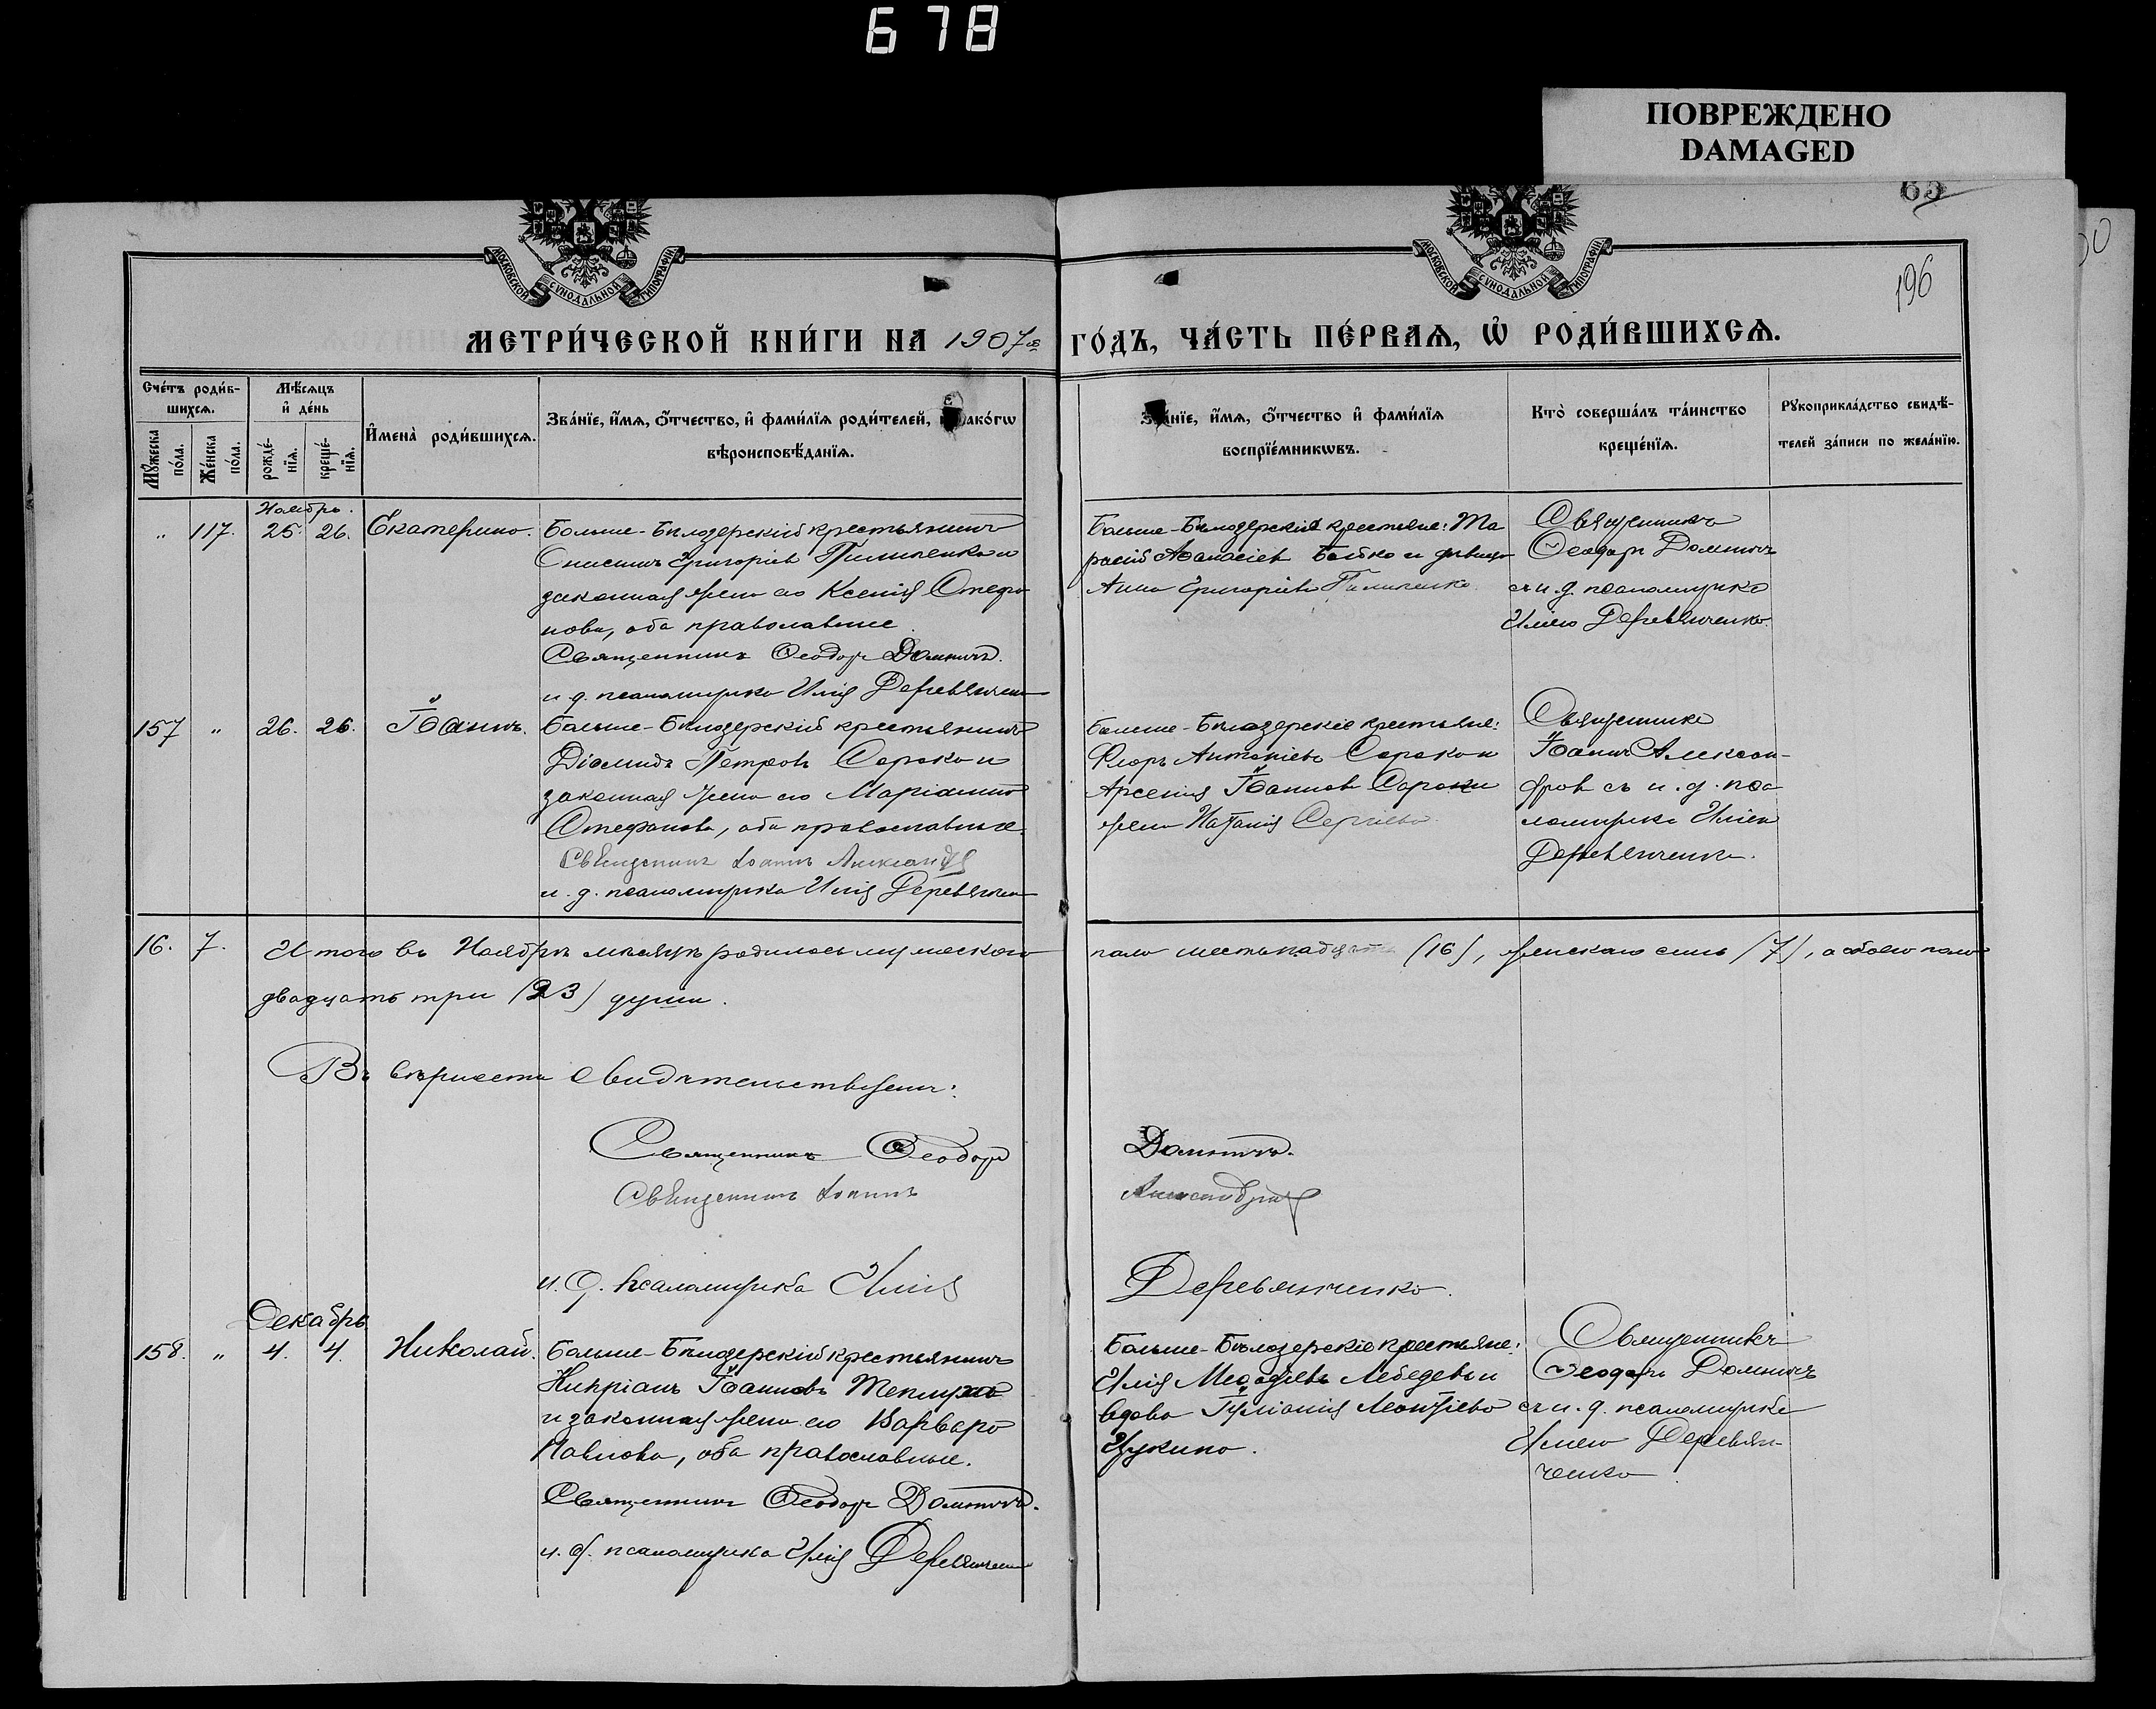 678
ПОВРЕЖДЕНО
DAMAGED
65
196
МОСКОВСКОЙ СѴНОДАЛЬНОЙ ТИПОГРАФІИ
МОСКОВСКОЙ СѴНОДАЛЬНОЙ ТИПОГРАФІИ
МЕТРИ́ЧЕСКОЙ КНИ́ГИ НА 1907й ГО́ДЪ, ЧА́СТЬ ПЕ́РВАѦ, Ѡ҆ РОДИ́ВШИХСѦ.
Сче́тъ роди́вшихсѧ.
Мꙋ́жеска по́ла.
Же́нска по́ла.
Мѣ́сѧцъ и҆ де́нь
рожде́нїѧ.
креще́нїѧ.
И҆мена̀ роди́вшихсѧ.
Зва́нїе, и҆́мѧ, ѻ҆́тчество, и҆ фами́лїѧ роди́телей, и҆ како́гѡ
вѣроисповѣ́данїѧ.
Зва́нїе, и҆́мѧ, ѻ҆́тчество и҆ фами́лїѧ
воспрїе́мникѡвъ.
Кто̀ соверша́лъ та́инство
креще́нїѧ.
Рꙋкоприкла́дство свидѣ́-
телей за́писи по жела́нїю.
Ноябрь.
" 117. 25. 26. Екатерина.
Больше-Бѣлозерскій крестьянинъ
Онисимъ Григоріевъ Пилипенко и
законная жена его Ксенія Стефа
нова, оба православные.
Священникъ Ѳеодоръ Домничъ.
и. д. псаломщика Илія Деревянченко
Больше-Бѣлозерскіе крестьяне: Та
расій Аѳанасіевъ Бойко и дѣвица
Анна Григоріева Пилипенко.
Священникъ
Ѳеодоръ Домничъ
съ и. д. псаломщика
Иліею Деревянченко.
157 " 26. 26. Іоаннъ.
Больше-Бѣлозерскій крестьянинъ
Діомидъ Петровъ Сорока и
законная жена его Маріамна
Стефанова, оба православные.
Священникъ Іоаннъ Александровъ
и. д. псаломщика Илія Деревянченко
Больше-Бѣлозерскіе крестьяне:
Флоръ Антоніевъ Сорока и
Арсенія Іоаннова Сороки
жена Наталія Сергіева.
Священникъ
Іоаннъ Алексан-
дровъ съ и. д. пса
ломщика Иліею
Деревянченко.
16. 7. Итого въ Ноябрѣ мѣсяцѣ родилось мужескаго пола шестьнадцать (16), женскаго семь (7), а обоего пола
двадцать три (23) души.
Въ вѣрности свидѣтельствуемъ:
Священникъ Ѳеодоръ Домничъ.
Священникъ Іоаннъ Александровъ
и. д. псаломщика Илія Деревянченко.
Декабрь
158. " 4. 4. Николай.
Больше-Бѣлозерскій крестьянинъ
Кипріанъ Іоанновъ Теплуха
и законная жена его Варвара
Павлова, оба православные.
Священникъ Ѳеодоръ Домничъ.
и. д. псаломщика Илія Деревянченко
Больше-Бѣлозерскіе крестьяне:
Илія Меѳодіевъ Лебедевъ и
вдова Іуліанія Леонтіева
Щукина.
Священникъ
Ѳеодоръ Домничъ
съ и. д. псаломщика
Иліею Деревян-
ченко